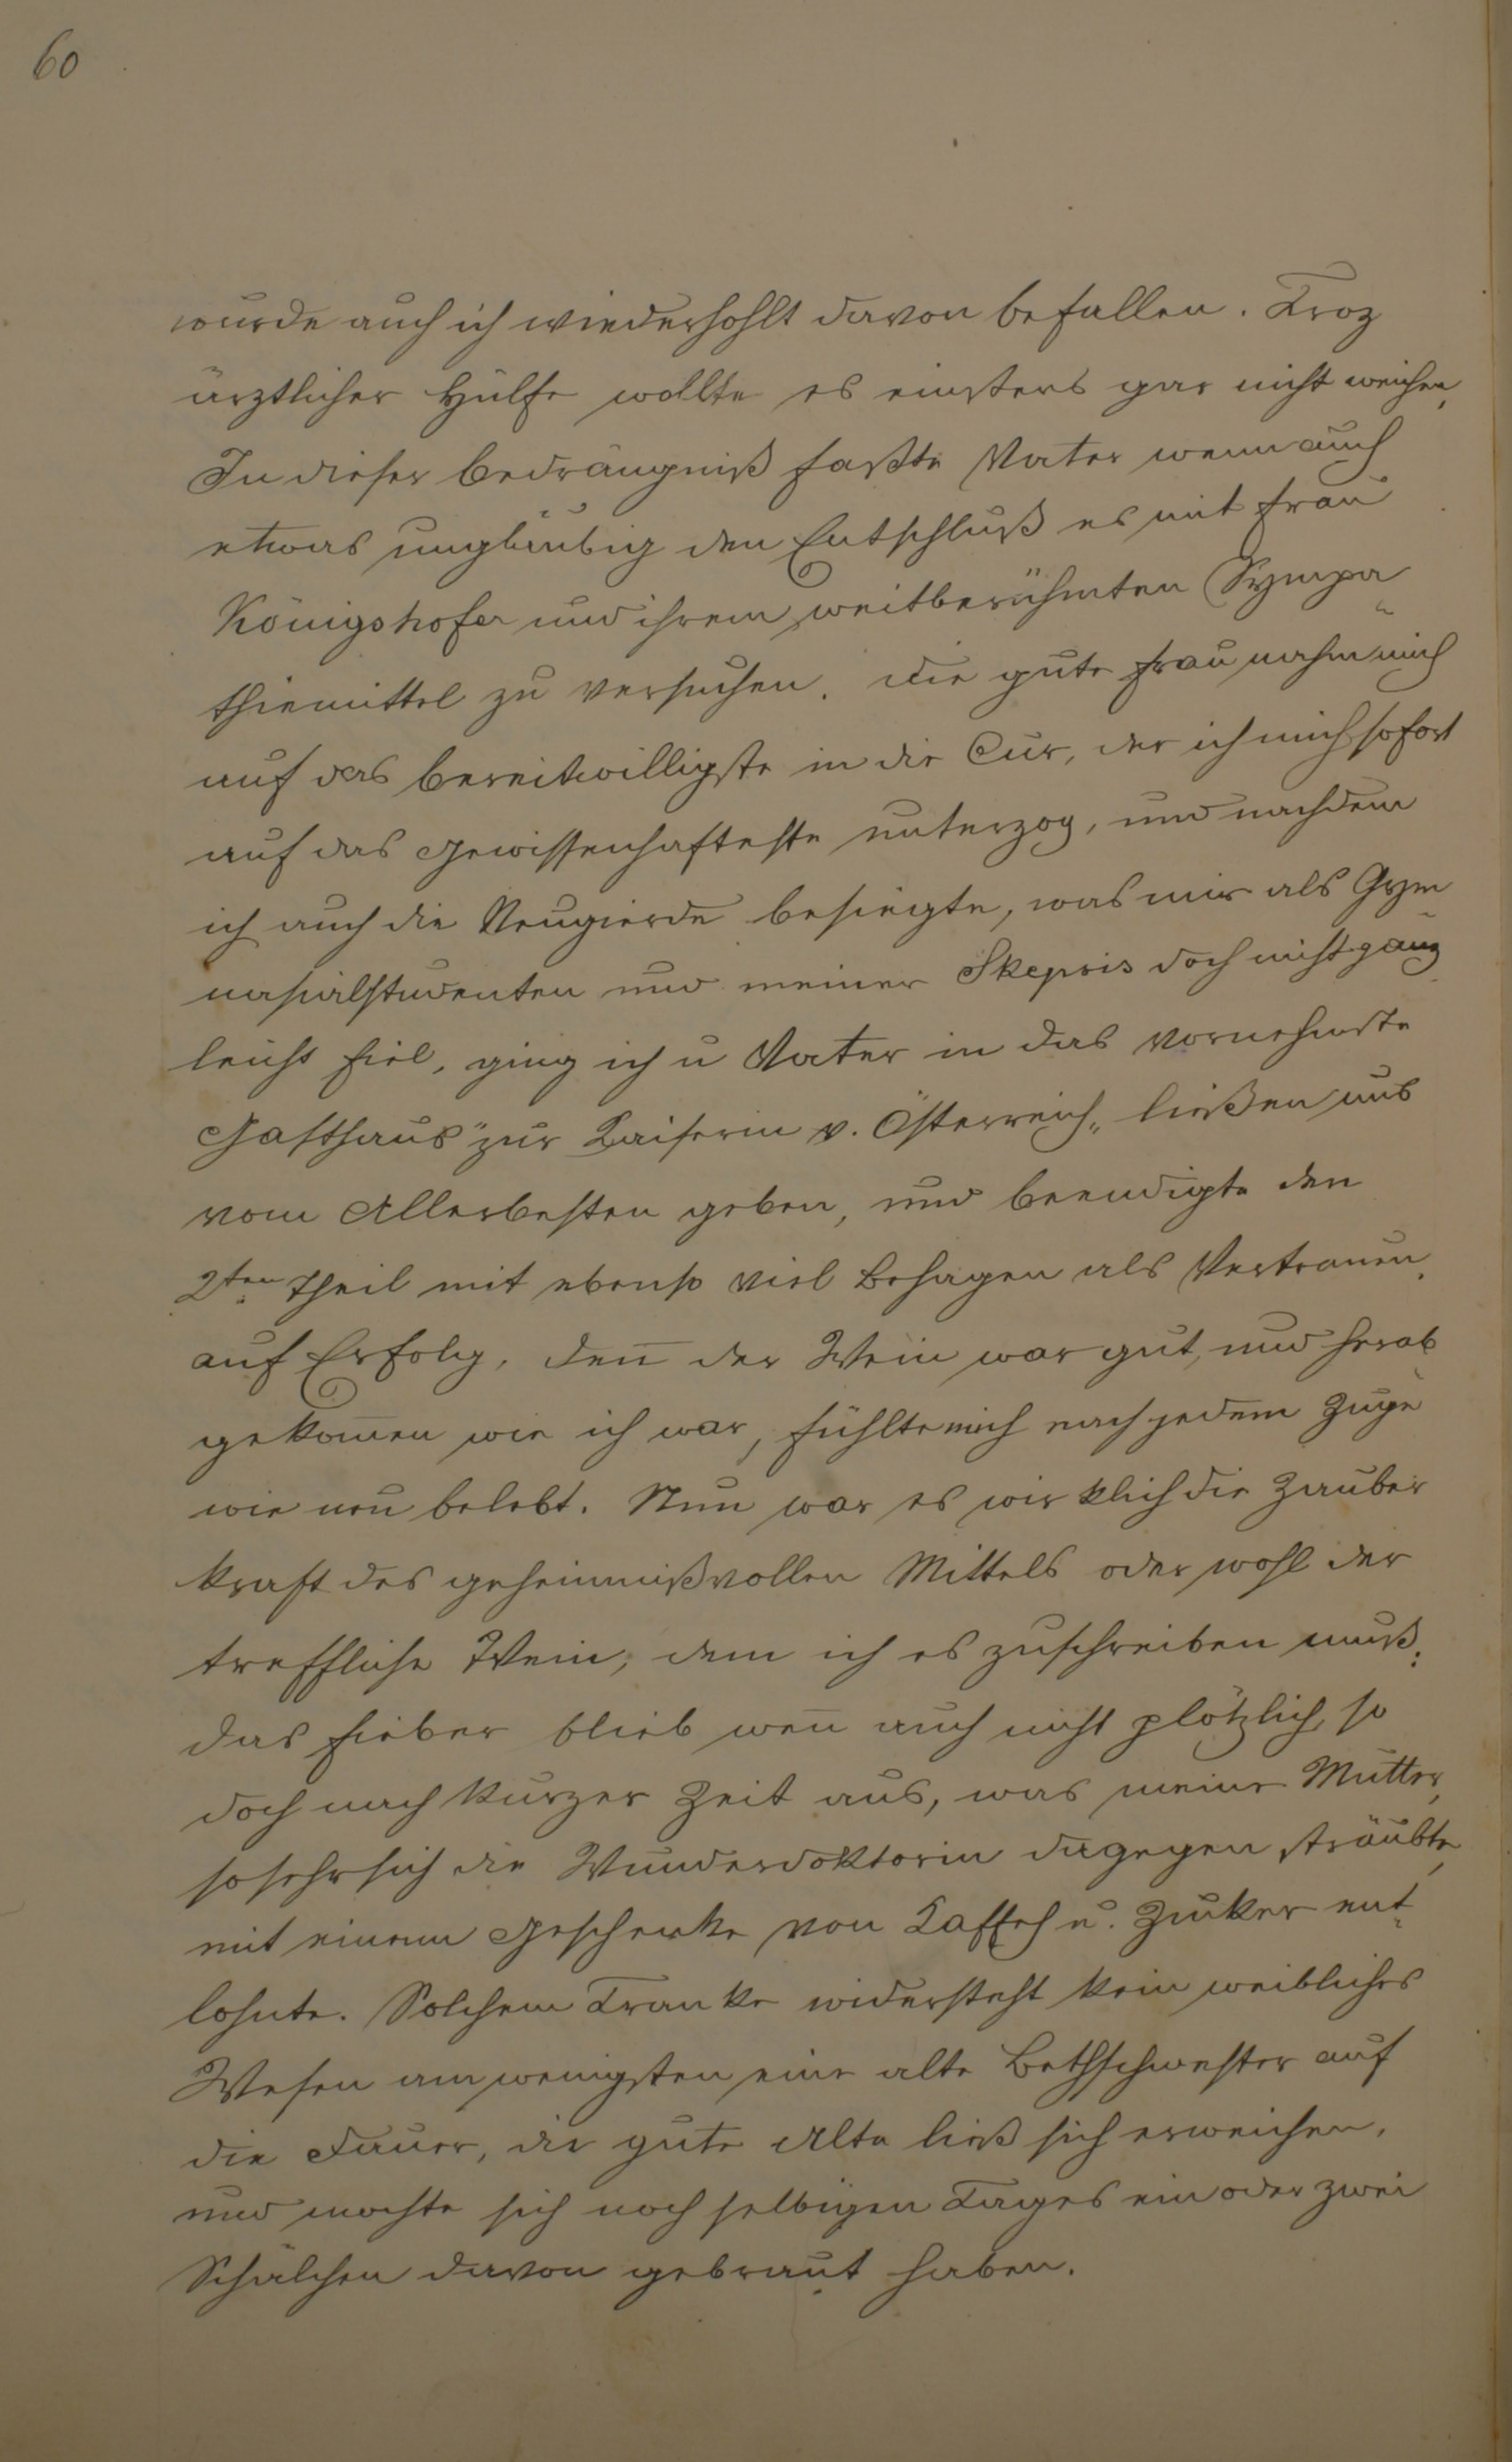 60
wurde auch ich wiederhohlt davon befallen. Troz
ärztlicher Hülfe wollte es einsters gar nicht weichen,
In dieser Bedrängniß faßte Vater wenn auch
etwas ungläubig den Entschluß es mit Frau
Königshofer und ihrem weitberühmten Sympa
thiemittel zu versuchen. Die gute Frau nahm mich
auf das bereitwilligste in die Cur, der ich mich sofort
auf das gewissenhafteste unterzog, und nachdem
ich auch die Neugierde besiegte, was mir als Gym
nasialstudenten und meiner Skepsis doch nicht ganz
leicht fiel, ging ich u Vater in das vornehmste
Gasthaus "zur Kaiserin v. Österreich„ ließen uns
vom Allerbesten geben, und beendigte den
2ten Theil mit ebenso viel Behagen als Vertrauen
auf Erfolg, deñ der Wein war gut, und herab
gekom̄en wie ich war, fühlte mich nach jedem Zuge
wie neu belebt. Nun war es wirklich die Zauber
kraft des geheimnißvollen Mittels oder wohl der
treffliche Wein, dem ich es zuschreiben muß:
das Fieber blieb weñ auch nicht plötzlich, so
doch nach kurzer Zeit aus, was meine Mutter,
so sehr sich die Wunderdoktorin dagegen sträubte,
mit einem Geschenke von Kaffeh u. Zuker ent
lohnte. Solchem Tranke widersteht kein weibliches
Wesen am wenigsten eine alte Bethschwester auf
die Dauer, die gute Alte ließ sich erweichen,
und mochte sich noch selbigen Tages ein oder zwei
Schälchen davon gebraut haben.